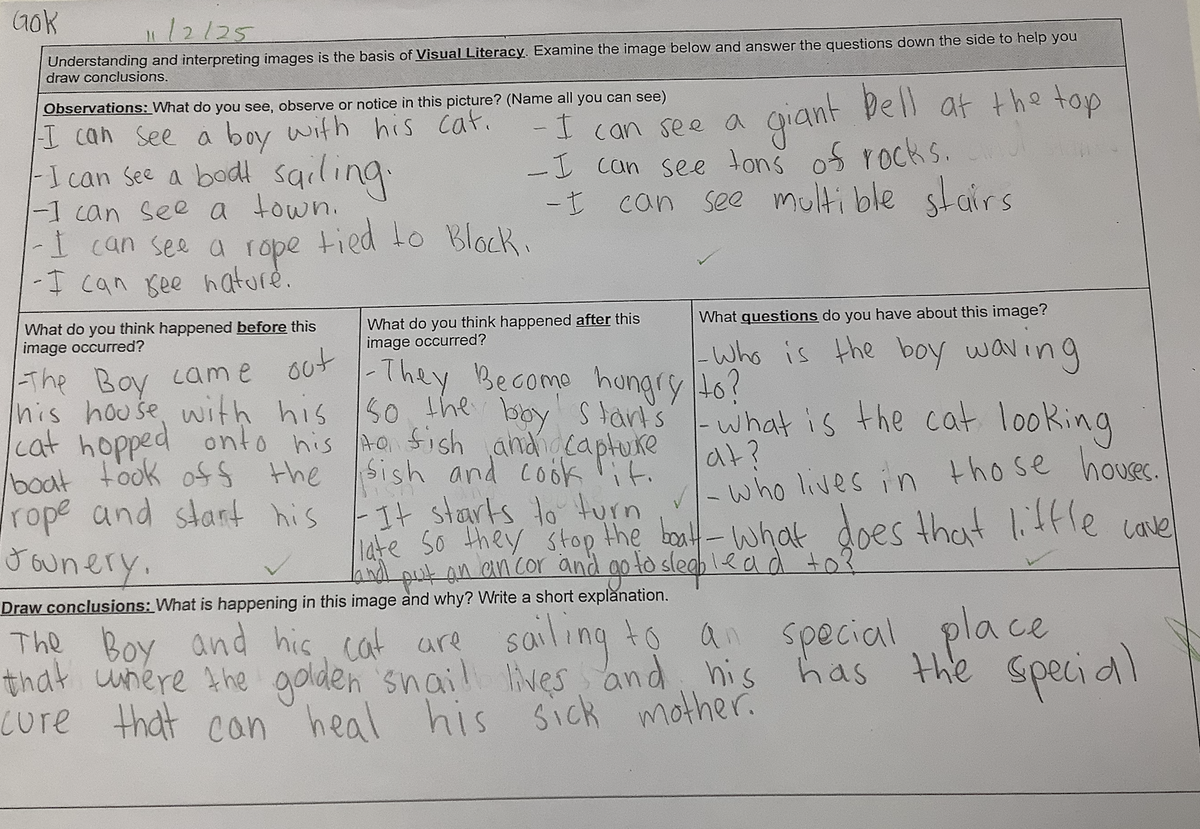 GOK
11/2/25
Understanding and interpreting images is the basis of Visual Literacy. Examine the image below and answer the questions down the side to help you
draw conclusions.
Observations: What do you see, observe or notice in this picture? (Name all you can see)
-I can see a boy with his cat.
-I can see a bodt sailing.
-I can see a town.
-I can see a rope tied to Block.
-I can see nature.
-I can see a giant bell at the top
-I can see tons of rocks.
-I can see multible stairs
What do you think happened before this
image occurred?
-The Boy came out
his house with his
cat hopped onto his
boat took off the
rope and start his
Jownery.
What do you think happened after this
image occurred?
-They Become hungry
so the boy starts
to fish and capture
fish and cook it.
-It starts to turn
late so they stop the boat
and put an ancor and go to sleep
What questions do you have about this image?
-Who is the boy waving
to?
-what is the cat looking
at?
-who lives in those houses.
-What does that little cave
lead to?
Draw conclusions: What is happening in this image and why? Write a short explanation.
The Boy and his cat are sailing to a special place
that where the golden snail lives and his has the special
cure that can heal his sick mother.